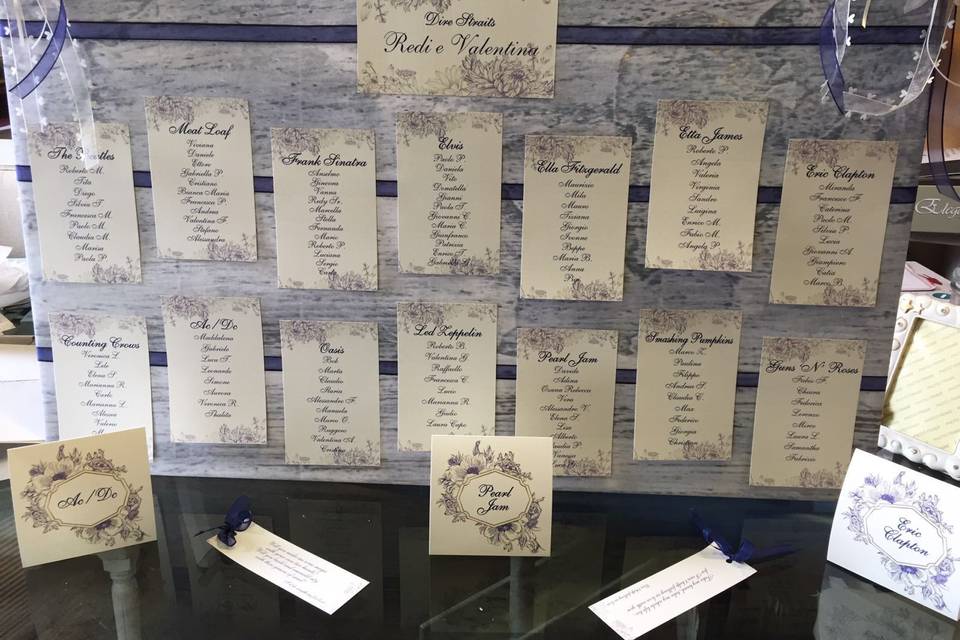 Dire Straits
Redi e Valentina
The
Roberto M.
Tita
Diego
Silvia T.
Francesca M.
Paolo M.
Claudia M.
Marisa
Paola P.
Meat Loaf
Viviana
Daniele
Ettore
Gabriella P.
Cristiano
Bianca Maria
Francesca P.
Andrea
Valentina F.
Stefano
Alessandra
Frank Sinatra
Anselmo
Ginevra
Vanna
Redy Sr.
Marcella
Stella
Fernanda
Mario
Roberto P.
Luciana
Sergio
Carla
Elvis
Paolo P.
Daniela
Vito
Donatella
Gianni
Paola T.
Giovanni C.
Maria C.
Gianfranco
Patrizia
Enrico S.
Ella Fitzgerald
Maurizio
Mila
Mauro
Tiziana
Giorgio
Ivonne
Beppe
Maria B.
Anna
Etta James
Roberto P.
Angela
Valeria
Virginia
Sandro
Luigina
Enrico M.
Fabio M.
Angela P.
Eric Clapton
Miranda
Francesca F.
Caterina
Paolo M.
Silvia P.
Luca
Giovanni A.
Giampiero
Catia
Marco B.
Counting Crows
Veronica L.
Lele
Elena S.
Marianna R.
Carlo
Marianna L.
Alissa
Valerio
Ac/Dc
Maddalena
Gabriele
Luca T.
Leonardo
Simone
Aurora
Veronica R.
Thalita
Oasis
Bob
Marta
Claudio
Ilaria
Alessandro F.
Manuela
Marco C.
Ruggero
Valentina A.
Cristina
Led Zeppelin
Roberto B.
Valentina G.
Raffaello
Francesca C.
Lucio
Marianna R.
Giulio
Laura Capo
Pearl Jam
Davide
Adina
Rebecca
Vera
Alessandro V.
Elena S.
Lia
Alberto
Vanessa
Luca
Smashing Pumpkins
Marco Z.
Paolina
Filippo
Andrea S.
Claudia C.
Max
Federico
Giorgia
Christian
Guns 'N' Roses
Fabio F.
Chiara
Federica
Lorenzo
Mirco
Laura L.
Samantha
Fabrizio
Ac/Dc
Pearl
Jam
Eric
Clapton
Take my hand, take my whole life too
for I can't help falling in love with you